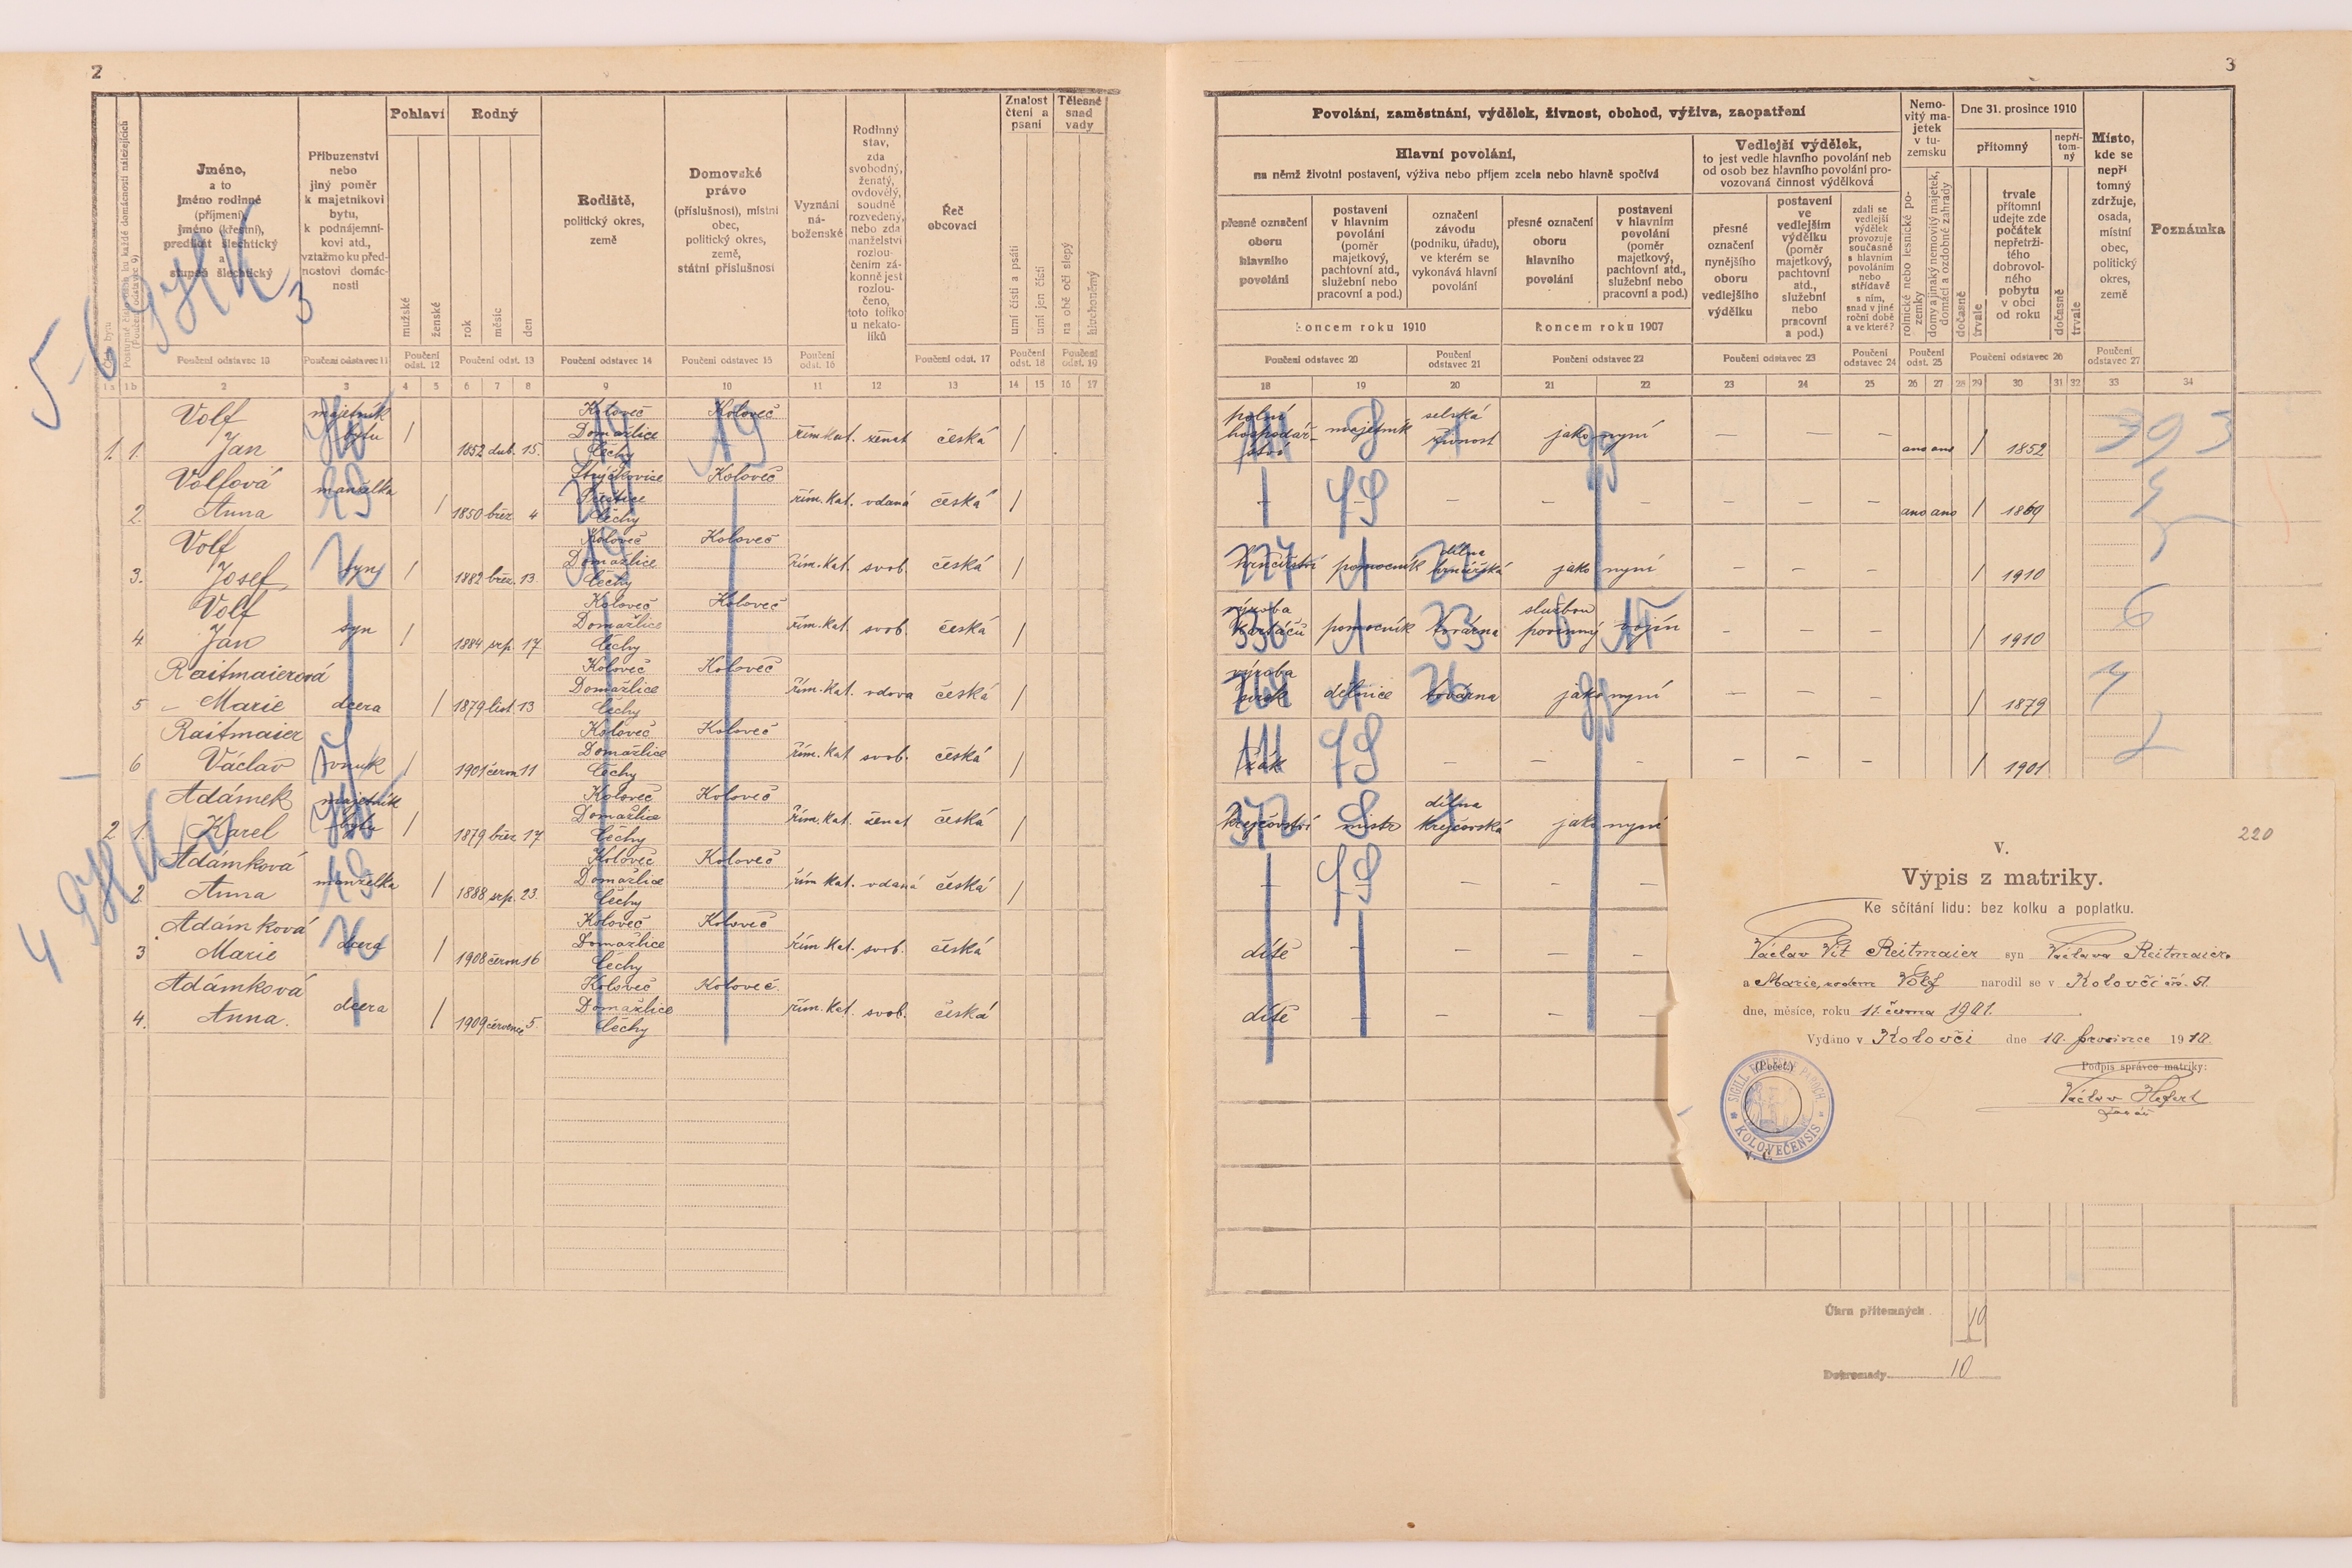 2
3
Číslo bytu
Postupné číslo osob ku každé domácnosti náležejících
(Poučení odstavec 9)
Jméno,
a to
jméno rodinné
(příjmení),
jméno (křestní),
predikát šlechtický
a
stupeň šlechtický
Příbuzenství
nebo
jiný poměr
k majetníkovi
bytu,
k podnájemní-
kovi atd.,
vztažmo ku před-
nostovi domác-
nosti
Pohlaví
mužské
ženské
Rodný
rok
měsíc
den
Rodiště,
politický okres,
země
Domovské
právo
(příslušnost), místní
obec,
politický okres,
země,
státní příslušnost
Vyznání
ná-
boženské
Rodinný
stav,
zda
svobodný,
ženatý,
ovdovělý,
soudně
rozvedený,
nebo zda
manželství
rozlou-
čením zá-
konně jest
rozlou-
čeno,
toto toliko
u nekato-
líků
Řeč
obcovací
Znalost
čtení a
psaní
umí čísti a psáti
umí jen čísti
Tělesné
snad
vady
na obě oči slepý
hluchoněmý
Poučení odstavec 10
Poučení odstavec 11
Poučení
odst. 12
Poučení odst. 13
Poučení odstavec 14
Poučení odstavec 15
Poučení
odst. 16
Poučení odst. 17
Poučení
odst. 18
Poučení
odst. 19
1a 1b 2 3 4 5 6 7 8 9 10 11 12 13 14 15 16 17
Volf majetník Koloveč Koloveč
bytu Domažlice
1. 1. Jan / 1852 dub. 15. Čechy řím. kat. ženat česká /
Volfová manželka Koloveč
2. Anna / 1850 břez. 4 Čechy řím. kat. vdaná česká /
Volf Koloveč Koloveč
3. Josef syn / 1882 břez. 13 Domažlice řím. kat. svob. česká /
Čechy
Volf Koloveč Koloveč
4 Jan syn / 1884 srp. 17 Domažlice řím. kat. svob. česká /
Čechy
Raitmaierová Koloveč Koloveč
5 Marie dcera / 1879 list. 13 Domažlice řím. kat. vdova česká /
Čechy
Raitmaier Koloveč Koloveč
6 Václav vnuk / 1901 červn 11 Domažlice řím. kat svob. česká /
Čechy
Adámek majetník Koloveč Koloveč
2 1. Karel bytu / 1879 břez 17 Domažlice řím. kat. ženat česká /
Čechy
Adámková Koloveč Koloveč
2. Anna manželka / 1888 srp. 23. Domažlice řím kat. vdaná česká /
Čechy
Adámková Koloveč Koloveč
3 Marie dcera / 1908 červn 16 Domažlice řím kat. svob. česká
Čechy
Adámková Koloveč Koloveč.
4. Anna. dcera / 1909 července 5. Domažlice řím. kat. svob. česká
Čechy
Povolání, zaměstnání, výdělek, živnost, obchod, výživa, zaopatření
Hlavní povolání,
na němž životní postavení, výživa nebo příjem zcela nebo hlavně spočívá
přesné označení
oboru
hlavního
povolání
postavení
v hlavním
povolání
(poměr
majetkový,
pachtovní atd.,
služební nebo
pracovní a pod.)
označení
závodu
(podniku, úřadu),
ve kterém se
vykonává hlavní
povolání
přesné označení
oboru
hlavního
povolání
postavení
v hlavním
povolání
(poměr
majetkový,
pachtovní atd.,
služební nebo
pracovní a pod.)
koncem roku 1910
koncem roku 1907
Vedlejší výdělek,
to jest vedle hlavního povolání neb
od osob bez hlavního povolání pro-
vozovaná činnost výdělková
přesné
označení
nynějšího
oboru
vedlejšího
výdělku
postavení
ve
vedlejším
výdělku
(poměr
majetkový,
pachtovní
atd.,
služební
nebo
pracovní
a pod.)
zdali se
vedlejší
výdělek
provozuje
současně
s hlavním
povoláním
nebo
střídavě
s ním,
snad v jiné
roční době
a ve které?
Nemo-
vitý ma-
jetek
v tu-
zemsku
rolnické nebo lesnické po-
zemky
domy a jinaký nemovitý majetek,
domácí a ozdobné zahrady
Dne 31. prosince 1910
přítomný
nepří-
tom-
ný
dočasně
trvale
trvale
přítomní
udejte zde
počátek
nepřetrži-
tého
dobrovol-
ného
pobytu
v obci
od roku
dočasně
trvale
Místo,
kde se
nepří
tomný
zdržuje,
osada,
místní
obec,
politický
okres,
země
Poznámka
Poučení odstavec 20
Poučení
odstavec 21
Poučení odstavec 22
Poučení odstavec 23
Poučení
odstavec 24
Poučení
odst. 25
Poučení odstavec 26
Poučení
odstavec 27
18 19 20 21 22 23 24 25 26 27 28 29 30 31 32 33 34
polní selská
hospodář- majetník živnost jako nyní — — — ano ano / 1852
ství
ano ano / 1869
hrnčířství pomocník dílna hrnčířská jako nyní – – – / 1910
výroba službou
kartáčů pomocník továrna povinný vojín – – – / 1910
výroba
dělnice továrna jako nyní – – – / 1879
žák – – – / 1901
krejčovství mistr dílna krejčovská jako nyní
dítě
dítě
220
V.
Výpis z matriky.
Ke sčítání lidu: bez kolku a poplatku.
Václav Vít Reitmaier syn Václava Reitmaiera
a Marie, rodem Volf narodil se v Kolovči čís. 51.
dne, měsíce, roku 11. června 1901.
Vydáno v Kolovči dne 10. prosince 1910.
(Pečeť.)
KOLOVEČENSIS
Podpis správce matriky:
V. Č.
Úhrn přítomných 10
Dohromady 10